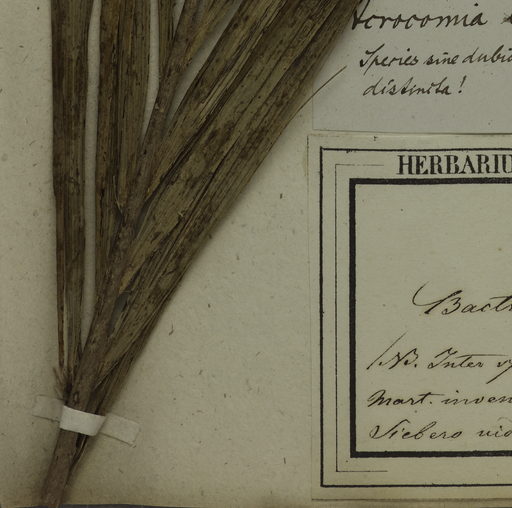 Acrocomia
Species sine dubio
distincta!
HERBARIU
Bactr
NB. Inter
Mart. inven
Siebero vi